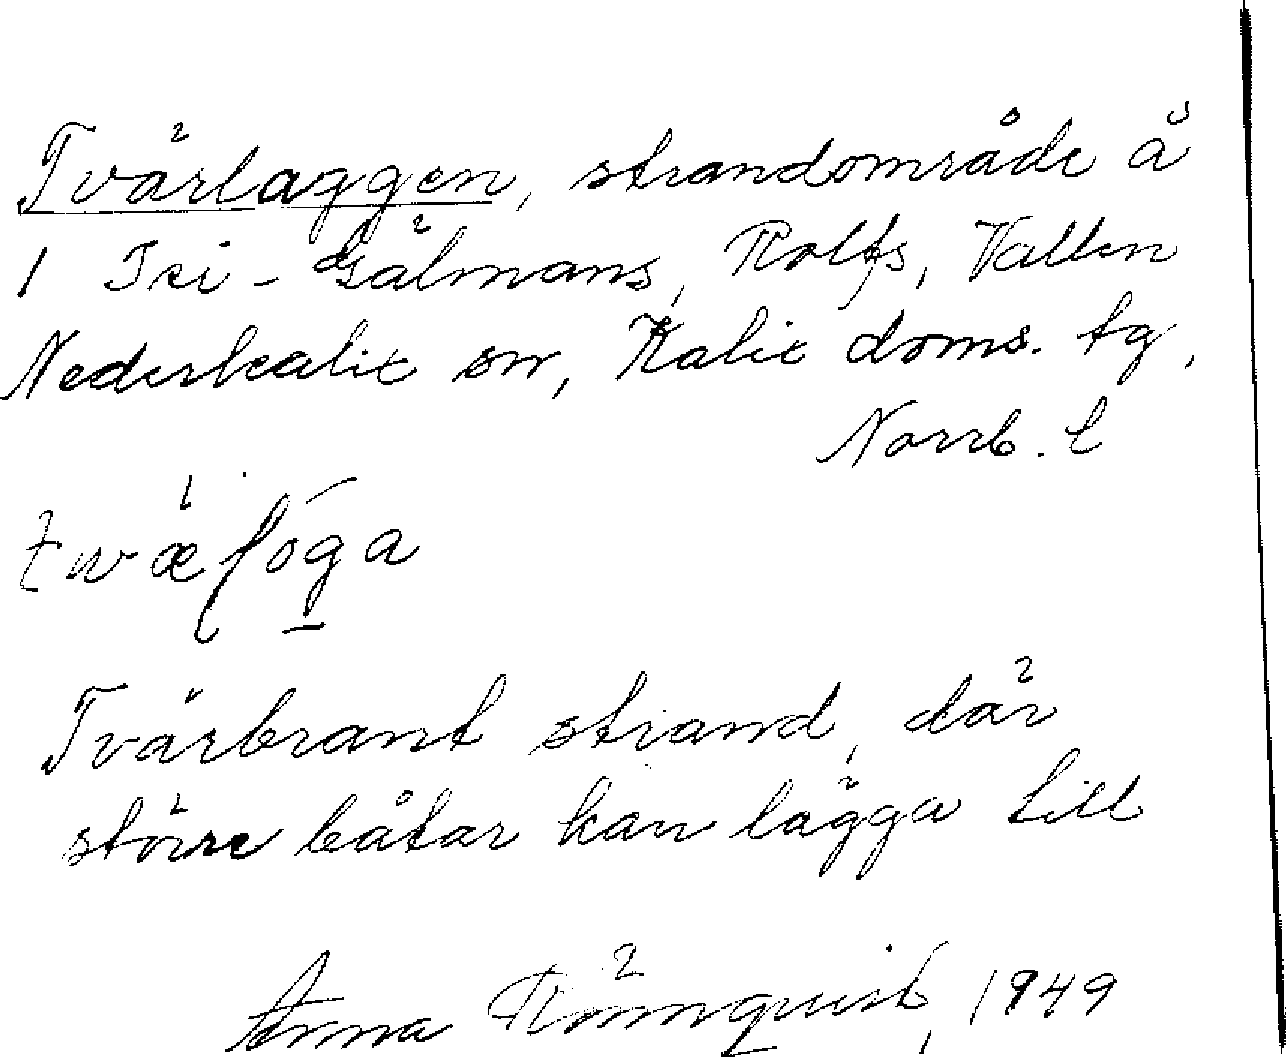 Tvärlaggen, strandområde å
1 Tei - Gälmans, Rolfs, Vallen
Nederkalix sn, Kalix doms. tg,
Norrb. l
Tvärbrant strand, där
större båtar kan lägga till
Anna Rönnquist, 1949